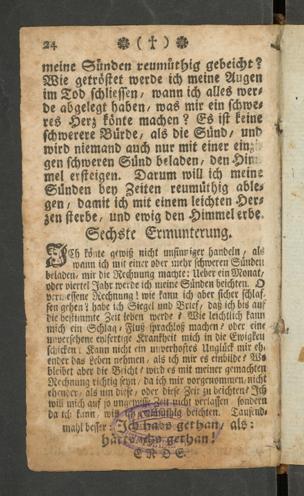 24 ❁ ( † ) ❁
meine Sünden reumüthig gebeicht?
Wie getröstet werde ich meine Augen
im Tod schliessen, wann ich alles wer-
de abgelegt haben, was mir ein schwe-
res Herz könte machen? Es ist keine
schwerere Bürde, als die Sünd, und
wird niemand auch nur mit einer einzi-
gen schweren Sünd beladen, den Him-
mel ersteigen. Darum will ich meine
Sünden bey Zeiten reumüthig able-
gen, damit ich mit einem leichten Her-
zen sterbe, und ewig den Himmel erbe.
Sechste Ermunterung.
ICh könte gewiß nicht unsinniger handeln, als
wann ich mit einer oder mehr schweren Sünden
beladen, mir die Rechnung machte: Ueber ein Monat,
oder viertel Jahr werde ich meine Sünden beichten. O
vermessene Rechnung! wie kann ich aber sicher schlaf-
fen gehen? habe ich Siegel und Brief, daß ich bis auf
die bestimmte Zeit leben werde? Wie leichtlich kann
mich ein Schlag-Fluß sprachloß machen, oder eine
unversehene eilfertige Krankheit mich in die Ewigkeit
schicken? Kann nicht ein unverhoftes Unglück mir eh-
ender das Leben nehmen, als ich mir es einbilde? Wo
bleibet aber die Beicht, wird es mit meiner gemachten
Rechnung richtig seyn, da ich mir vorgenommen, nicht
ehender, als um diese, oder diese Zeit zu beichten? Ich
will mich auf so ungewisse Zeit nicht verlassen, sondern
da ich kann, will ich reumüthig beichten. Tausend-
mahl besser: Ich habs gethan, als:
hätte ichs gethan!
ENDE.